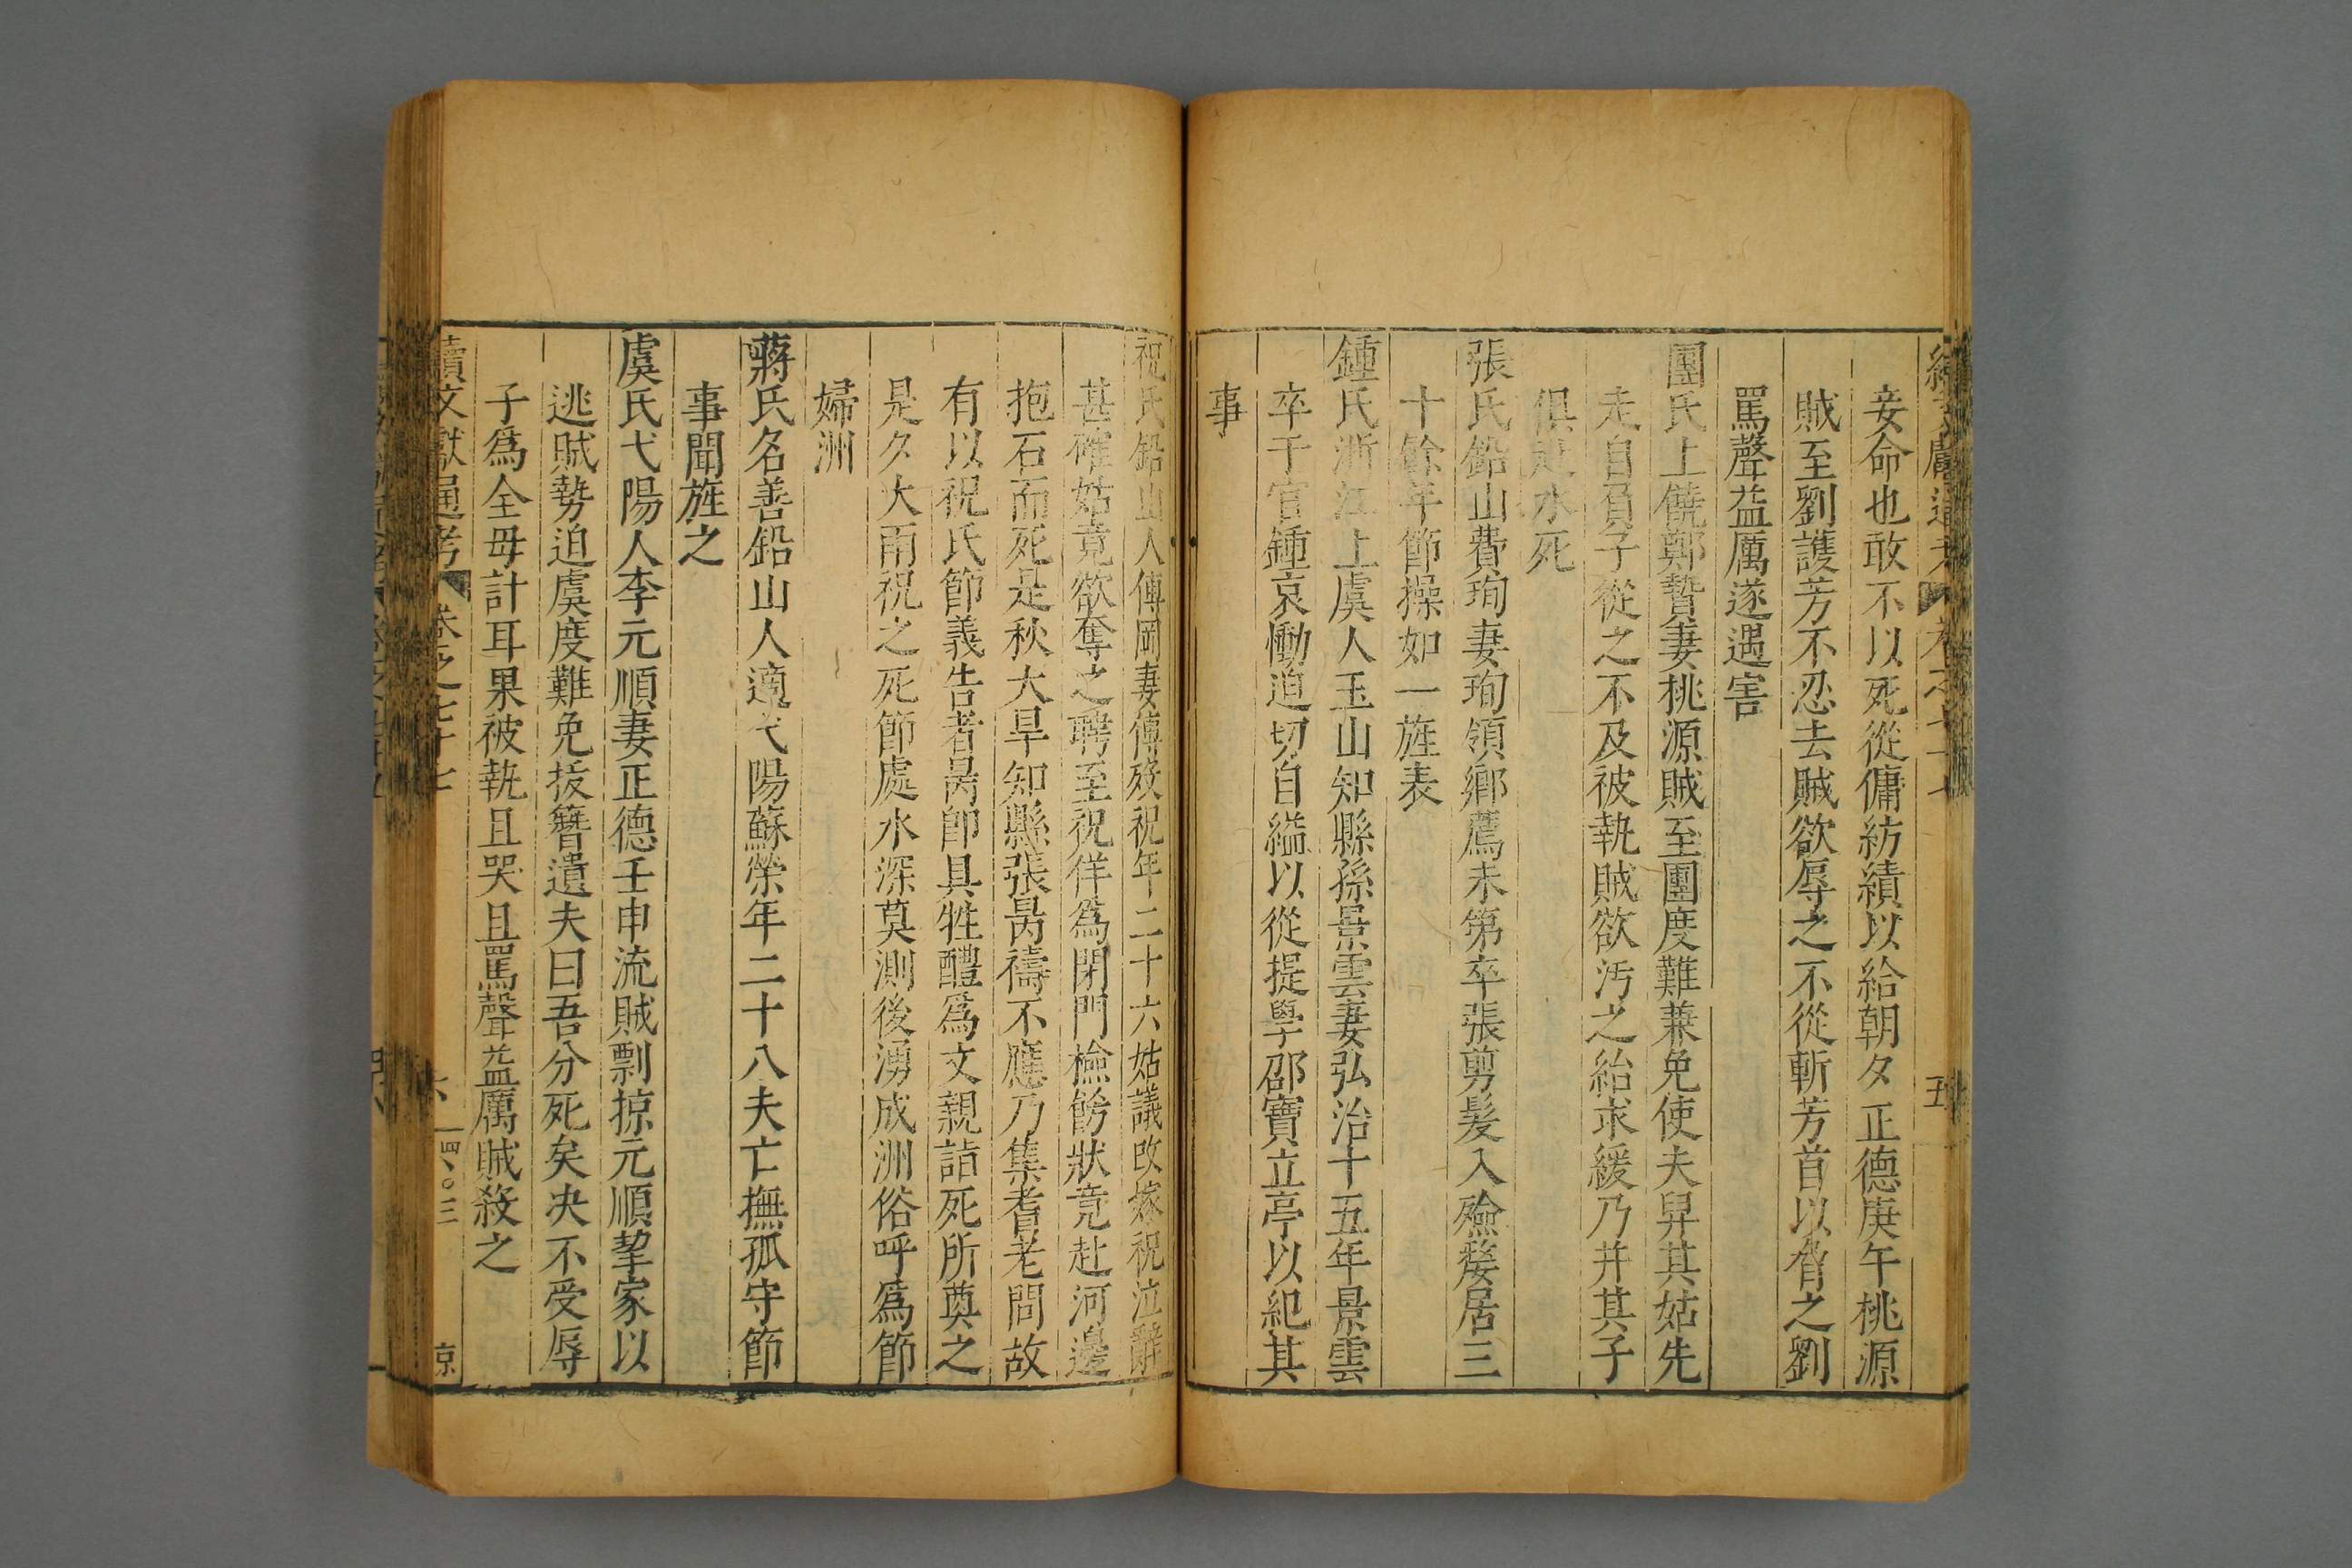 妾命也敢不以死從傭紡績以給朝夕正德庚午桃源
賊至劉護芳不忍去賊欲辱之不從斬芳首以脅之劉
罵聲益厲遂遇害
團氏上饒鄭贊妻桃源賊至團度難兼免使夫舁其姑先
走自負子從之不及被執賊欲汚之紿求緩乃并其子
俱赴水死
張氏鉛山費珣妻珣領鄉薦未第卒張剪髮入殮嫠居三
十餘年節操如一旌表
鍾氏浙江上虞人玉山知縣孫景雲妻弘治十五年景雲
卒于官鍾哀慟迫切自縊以從提學邵寶立亭以紀其
事
祝氏鉛山人傅岡妻傅歿祝年二十六姑議改嫁祝泣辭
甚確姑竟欲奪之聘至祝佯爲閉門檢飭狀竟赴河邊
抱石而死是秋大旱知縣張昺禱不應乃集耆老問故
有以祝氏節義告者昺卽具牲醴爲文親詣死所奠之
是夕大雨祝之死節處水深莫測後湧成洲俗呼爲節
婦洲
蔣氏名善鉛山人適弋陽蘇榮年二十八夫亡撫孤守節
事聞旌之
虞氏弋陽人李元順妻正德壬申流賊剽掠元順挈家以
逃賊勢迫虞度難免拔簪遺夫曰吾分死矣决不受辱
子爲全毋計耳果被執且哭且罵聲益厲賊殺之
續文獻通考 卷之七十七 六 四〇三 京